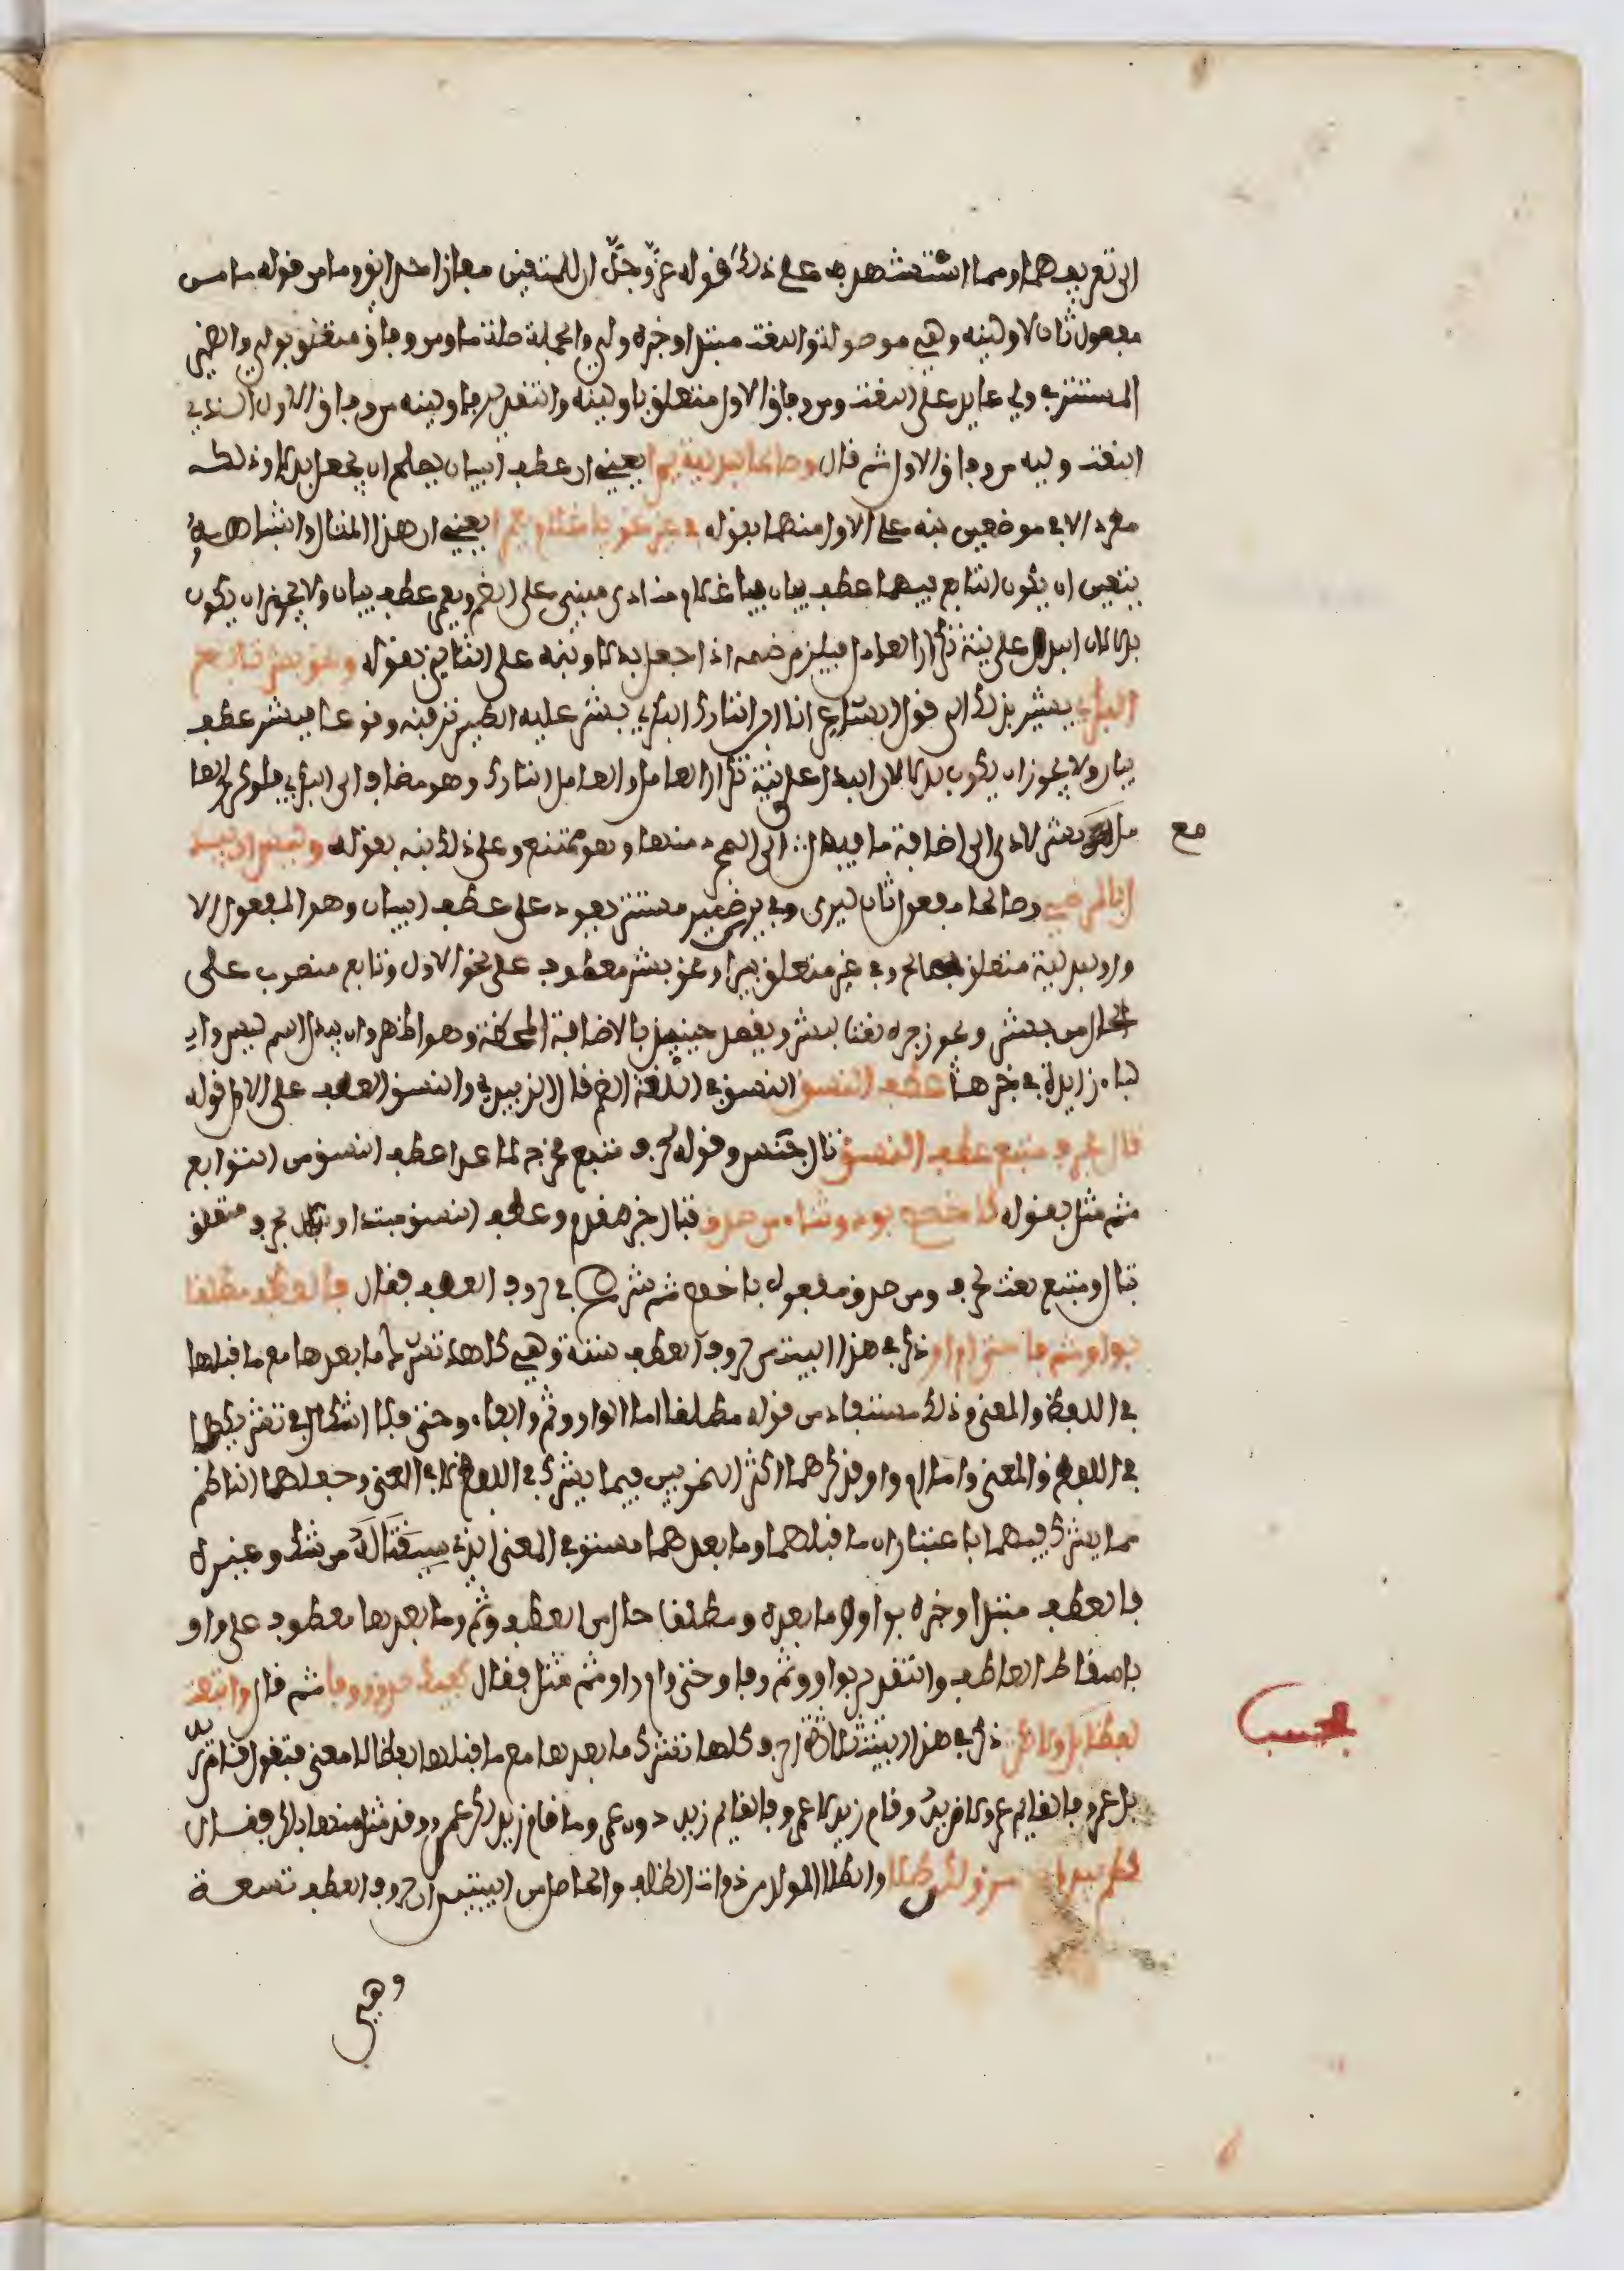 الى تعريفهما ومما استشهد به على ذلك قوله عز وجل ان للمتقين مفازا حدائق وما من قوله ما من
مفعول ثان لاولينه وهي موصولة والنعت مبتدا وخبره ولي والجملة صلة ما ومن وفاق متعلق بولي والضمير
المستتر في ولي عايد على النعت ومن وفاق الاول متعلق باولينه والتقدير فاولينه من وفاق الاول الذي
النعت وليه من وفاق الاول ثم قال وصالحا لبدلية يرى يعني ان عطف البيان يصلح ان يجعل بدلا وذلك
مطرد الا في موضعين نبه على الاول منهما بقوله في غير نحو يا غلام يعمرا يعني ان هذا المثال وما شابهه
يتعين ان يكون التابع فيهما عطف بيان فيا غلام منادى مبني على الضم ويعمر عطف بيان ولا يجوز ان يكون
بدلا لان البدل على نية تكرار العامل فيلزم ضمه اذا جعل بدلا ونبه على الثاني بقوله ونحو بشر تابع
البكري يشير بذلك الى قول الشاعر انا ابن التارك البكري بشر عليه الطير ترقبه وقوعا فبشر عطف
بيان ولا يجوز ان يكون بدلا لان البدل على نية تكرار العامل والعامل التارك وهو مضاف الى البكري فلو كرر العا
مل مع بشر لادى الى اضافة ما فيه ال الى المجرد منها وهو ممتنع وعلى ذلك نبه بقوله وليس ان يبد
ل بالمرضي وصالحا مفعول ثان ليرى وفي يرى ضمير مستتر يعود على عطف البيان وهو المفعول الا
ول ولبدلية متعلق بصالح وفي غير متعلق بيرى ونحو بشر معطوف على نحو الاول وتابع منصوب على
الحال من بشر ويجوز جره نعتا لبشر ويقصد حينئذ بالاضافة المحضة وهو اظهر وان يبدل اسم ليس والـ
باء زايدة في خبرها عطف النسق النسق في اللغة النظم قال الزبيدي والنسق العطف على الاول قوله
تال بحرف متبع عطف النسق تال جنس وقوله بحرف متبع مخرج لما عدا عطف النسق من التوابع
ثم مثل بقوله كاخصص بود وثناء من صدق فتال خبر مقدم وعطف النسق مبتدا وبحرف متعلق
بتال ومتبع نعت لحرف ومن صدق مفعول باخصص ثم شرع في حروف العطف فقال فالعطف مطلقا
بواو ثم فا حتى ام او ذكر في هذا البيت من حروف العطف ستة وهي كلها تشرك ما بعدها مع ما قبلها
في اللفظ والمعنى وذلك مستفاد من قوله مطلقا اما الواو وثم والفاء وحتى فلا اشكال في تشريكها
في اللفظ والمعنى واما ام واو فذكرهما اكثر النحويين فيما يشرك في اللفظ لا في المعنى وجعلهما الناظم
مما يشرك فيهما باعتبار ان ما قبلهما وما بعدهما مستو في المعنى الذي سيقتا له من شك وغيره
فالعطف مبتدا وخبره بواو وما بعده ومطلقا حال من العطف وثم وما بعدها معطوف على واو
باسقاط العاطف والتقدير بواو وثم وفا وحتى وام واو ثم مثل فقال كفيك صدق ووفا ثم قال واتبعت
لفظا بل ولا لكن ذكر في هذا البيت ثلاثة احرف كلها تشرك ما بعدها مع ما قبلها لفظا لا معنى فتقول قام زيد
بل عمرو فالقايم عمرو لا زيد وقام زيد لا عمرو فالقايم زيد دون عمرو وما قام زيد لكن عمرو وقد مثل منها بلكن فقال
كلم يبد امرؤ لكن طلا والطلا الولد من ذوات الظلف والحاصل من البيتين ان حروف العطف تسعة
وهي
مع